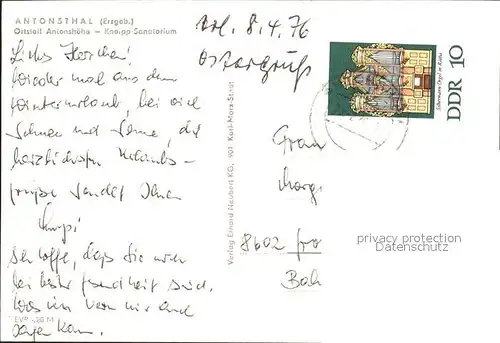 ANTONSTHAL (Erzgeb.)
Ortsteil Antonshöhe - Kneipp-Sanatorium
8.4.76
Ostergruß
Liebes
Wieder mal aus dem
Winterurlaub, bei viel
Schnee und Sonne, die
herzlichsten Urlaubs-
grüße sendet Ihnen
Ich hoffe, daß Sie
bei bester Gesundheit sind,
was ich von mir auch
sagen kann.
EVP -,20 M
Verlag Erhard Neubert KG, 901 Karl-Marx-Stadt
DDR 10
Frau
8602
privacy protection
Datenschutz